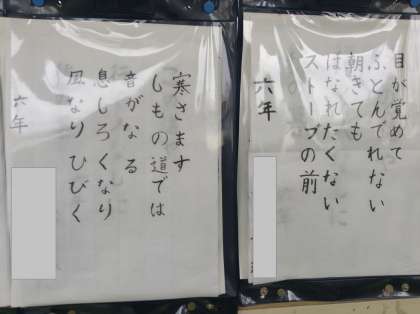 寒さます
しもの道では
音がなる
息しろくなり
風なりひびく
六年
目が覚めて
ふとんでれない
朝きても
はなれたくない
ストーブの前
六年